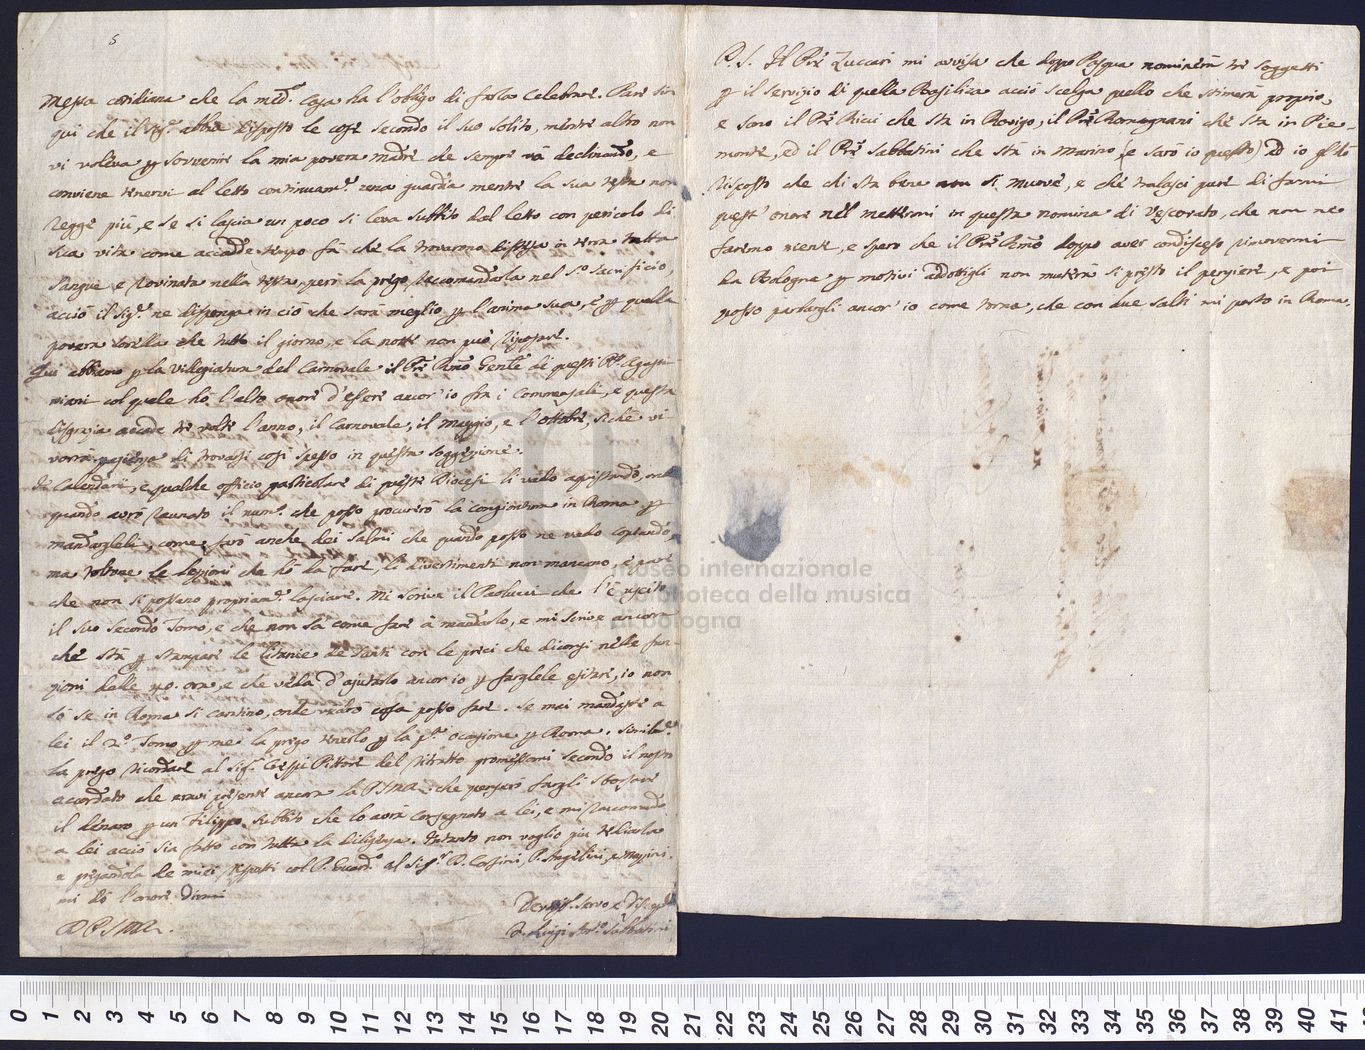 5
Messa cotidiana che la med.ª Casa ha l'obligo di farla celebrare. Pare sin
qui che il Sig.e abbia disposto le cose secondo il suo solito, mentre altro non
vi voleva p sovvenire la mia povera madre che sempre và declinando, e
conviene tenervi al letto continuam.e una guardia mentre la sua testa non
regge più, e se si lascia un poco si leva subbito dal letto con pericolo di
sua vita come accadde tempo fà che la trovarono distesa in terra tutta
sangue e rovinata nella testa, però la prego raccomandarla nel S.o Sacrificio
acciò il Sig.e ne disponga in ciò che sarà meglio p l'anima sua, e p quella
povera sorella che tutto il giorno, e la notte non può riposare.
Qui abbiamo p la villegiatura del Carnovale il Pre Rmo Gente di questi PP. Agosti-
niani col quale hò l'alto onore d'essere ancor'io frà i Commensali, e questa
disgrazia accade trè volte l'anno, il Carnovale, il maggio, e l'ottobre, sichè vi
vorrà pazienza di trovarsi così spesso in questa soggezione.
De Calendari, e qualche officio particolare di queste Diocesi li vado agiustando, onde
quando avrò raunato il num.o che posso procurerò la congiontura in Roma p
mandarglieli, come farò anche dei Salmi che quando posso ne vado copiando
ma toltone le lezzioni che hò da fare, li divertimenti non mancano, e
che non si possono propriam.e lasciare. Mi scrive il Paolucci che l'è uscito
il suo secondo Tomo, e che non sà come fare à mandarlo, e mi scrive ancora
che stà p stampare le Litanie de Santi con le preci che dicorsi nelle fun-
zioni delle 40. ore, e che veda d'ajutarlo ancor io p farglele esitare, io non
sò se in Roma si cantino, onde vedrò cosa posso fare. Se mai mandasse a
lei il 2.o Tomo p me la prego tenerlo p la p.a occasione p Roma. Similm.e
la prego ricordare al Sig.e Crespi Pittore del ritratto promessomi secondo il nostro
accordato che eravi presente ancora la P.S.M.R. che penserò fargli sborsare
il denaro p un Filippo subbito che lo avrà consegnato a lei, e mi raccomando
a lei acciò sia fatto con tutta la diligenza. Intanto non voglio più tediarla
e pregandola de miei rispetti col P. Guard.o al Sig.e D. Corsini, P. Angelini, e Mazzini.
mi dò l'onore dirmi
D P.S.M.R.
Devmo. Servo, e Discep.
F. Luigi Ant.o Sabbatini
P.S. Il Pre Zuccari mi avvisa che doppo Pasqua nominerà trè soggetti
p il servizio di quella Basilica acciò scelga quello che stimerà proprio,
e sono il Pre Ricci che stà in Rovigo, il Pre Romagnani che stà in Pie-
monte, ed il Pre Sabbatini che stà in Marino (e sarò io questo) Ed io gl'hò
risposto che chi sta bene non si muove, e che tralasci pure di farmi
quest'onore nel mettermi in questa nomina di Vescovato, che non ne
faremo niente, e spero che il Pre Rmo doppo aver condisceso rimovermi
da Bologna p motivi addottigli non muterà si presto il pensiere, e poi
posso parlargli ancor'io come torna, che con due salti mi porto in Roma.
museo internazionale
e biblioteca della musica
di bologna
0 1 2 3 4 5 6 7 8 9 10 11 12 13 14 15 16 17 18 19 20 21 22 23 24 25 26 27 28 29 30 31 32 33 34 35 36 37 38 39 40 41